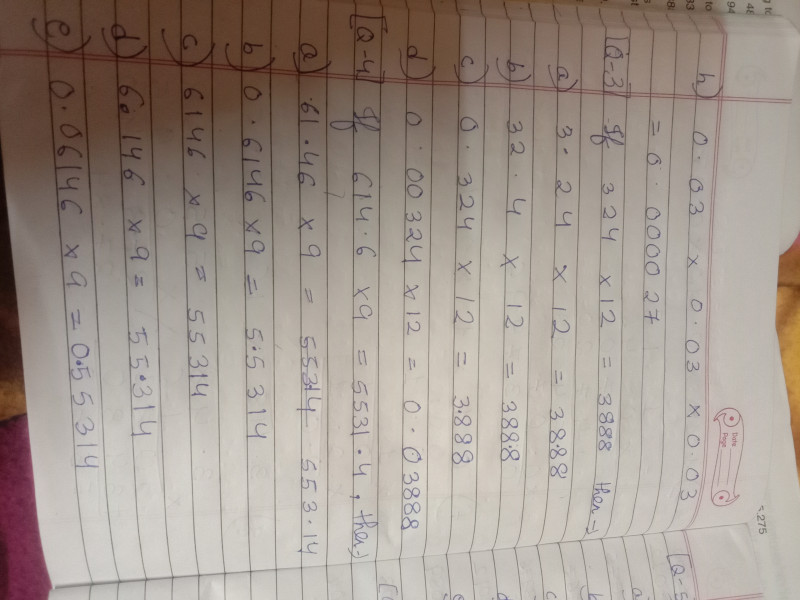 Date
Page
h) 0.03 x 0.03 x 0.03
= 0.000027
[Q-3] If 324 x 12 = 3888 then→
a) 3.24 x 12 = 38.88
b) 32.4 x 12 = 388.8
c) 0.324 x 12 = 3.888
d) 0.00324 x 12 = 0.03888
[Q-4] If 614.6 x 9 = 5531.4, then→
a) 61.46 x 9 = 553.14
b) 0.6146 x 9 = 5.5314
c) 6146 x 9 = 55314
d) 6.146 x 9 = 55.314
e) 0.06146 x 9 = 0.55314
275
[Q-5